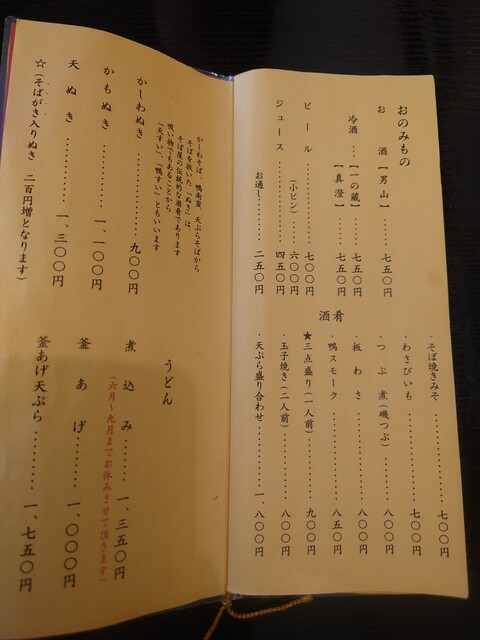 おのみもの
お酒【男山】……七五〇円
冷酒…【一の蔵】……七五〇円
【真澄】……七五〇円
ビール………………七〇〇円
(小ビン)……六〇〇円
ジュース……………四五〇円
お通し………二五〇円
酒肴
・そば焼きみそ………………七〇〇円
・わさびいも………………七〇〇円
・つぶ煮(磯つぶ)…………八〇〇円
・板わさ………………八〇〇円
・鴨スモーク………………八五〇円
★三点盛り(一人前)…………九〇〇円
・玉子焼き(二人前)…………八〇〇円
・天ぷら盛り合わせ…………一、八〇〇円
かしわそば、鴨南蛮、天ぷらそばから
そばを抜いた「ぬき」は、
そば屋の伝統的な酒肴であります
吸い物でもあることから
「天すい」、「鴨すい」ともいいます
かしわぬき……………九〇〇円
かもぬき……………一、一〇〇円
天ぬき……………一、三〇〇円
☆(そばがき入りぬき 二百円増となります)
うどん
煮込み………一、三五〇円
(六月〜九月までお休みさせて頂きます)
釜あげ………一、〇〇〇円
釜あげ天ぷら………一、七五〇円